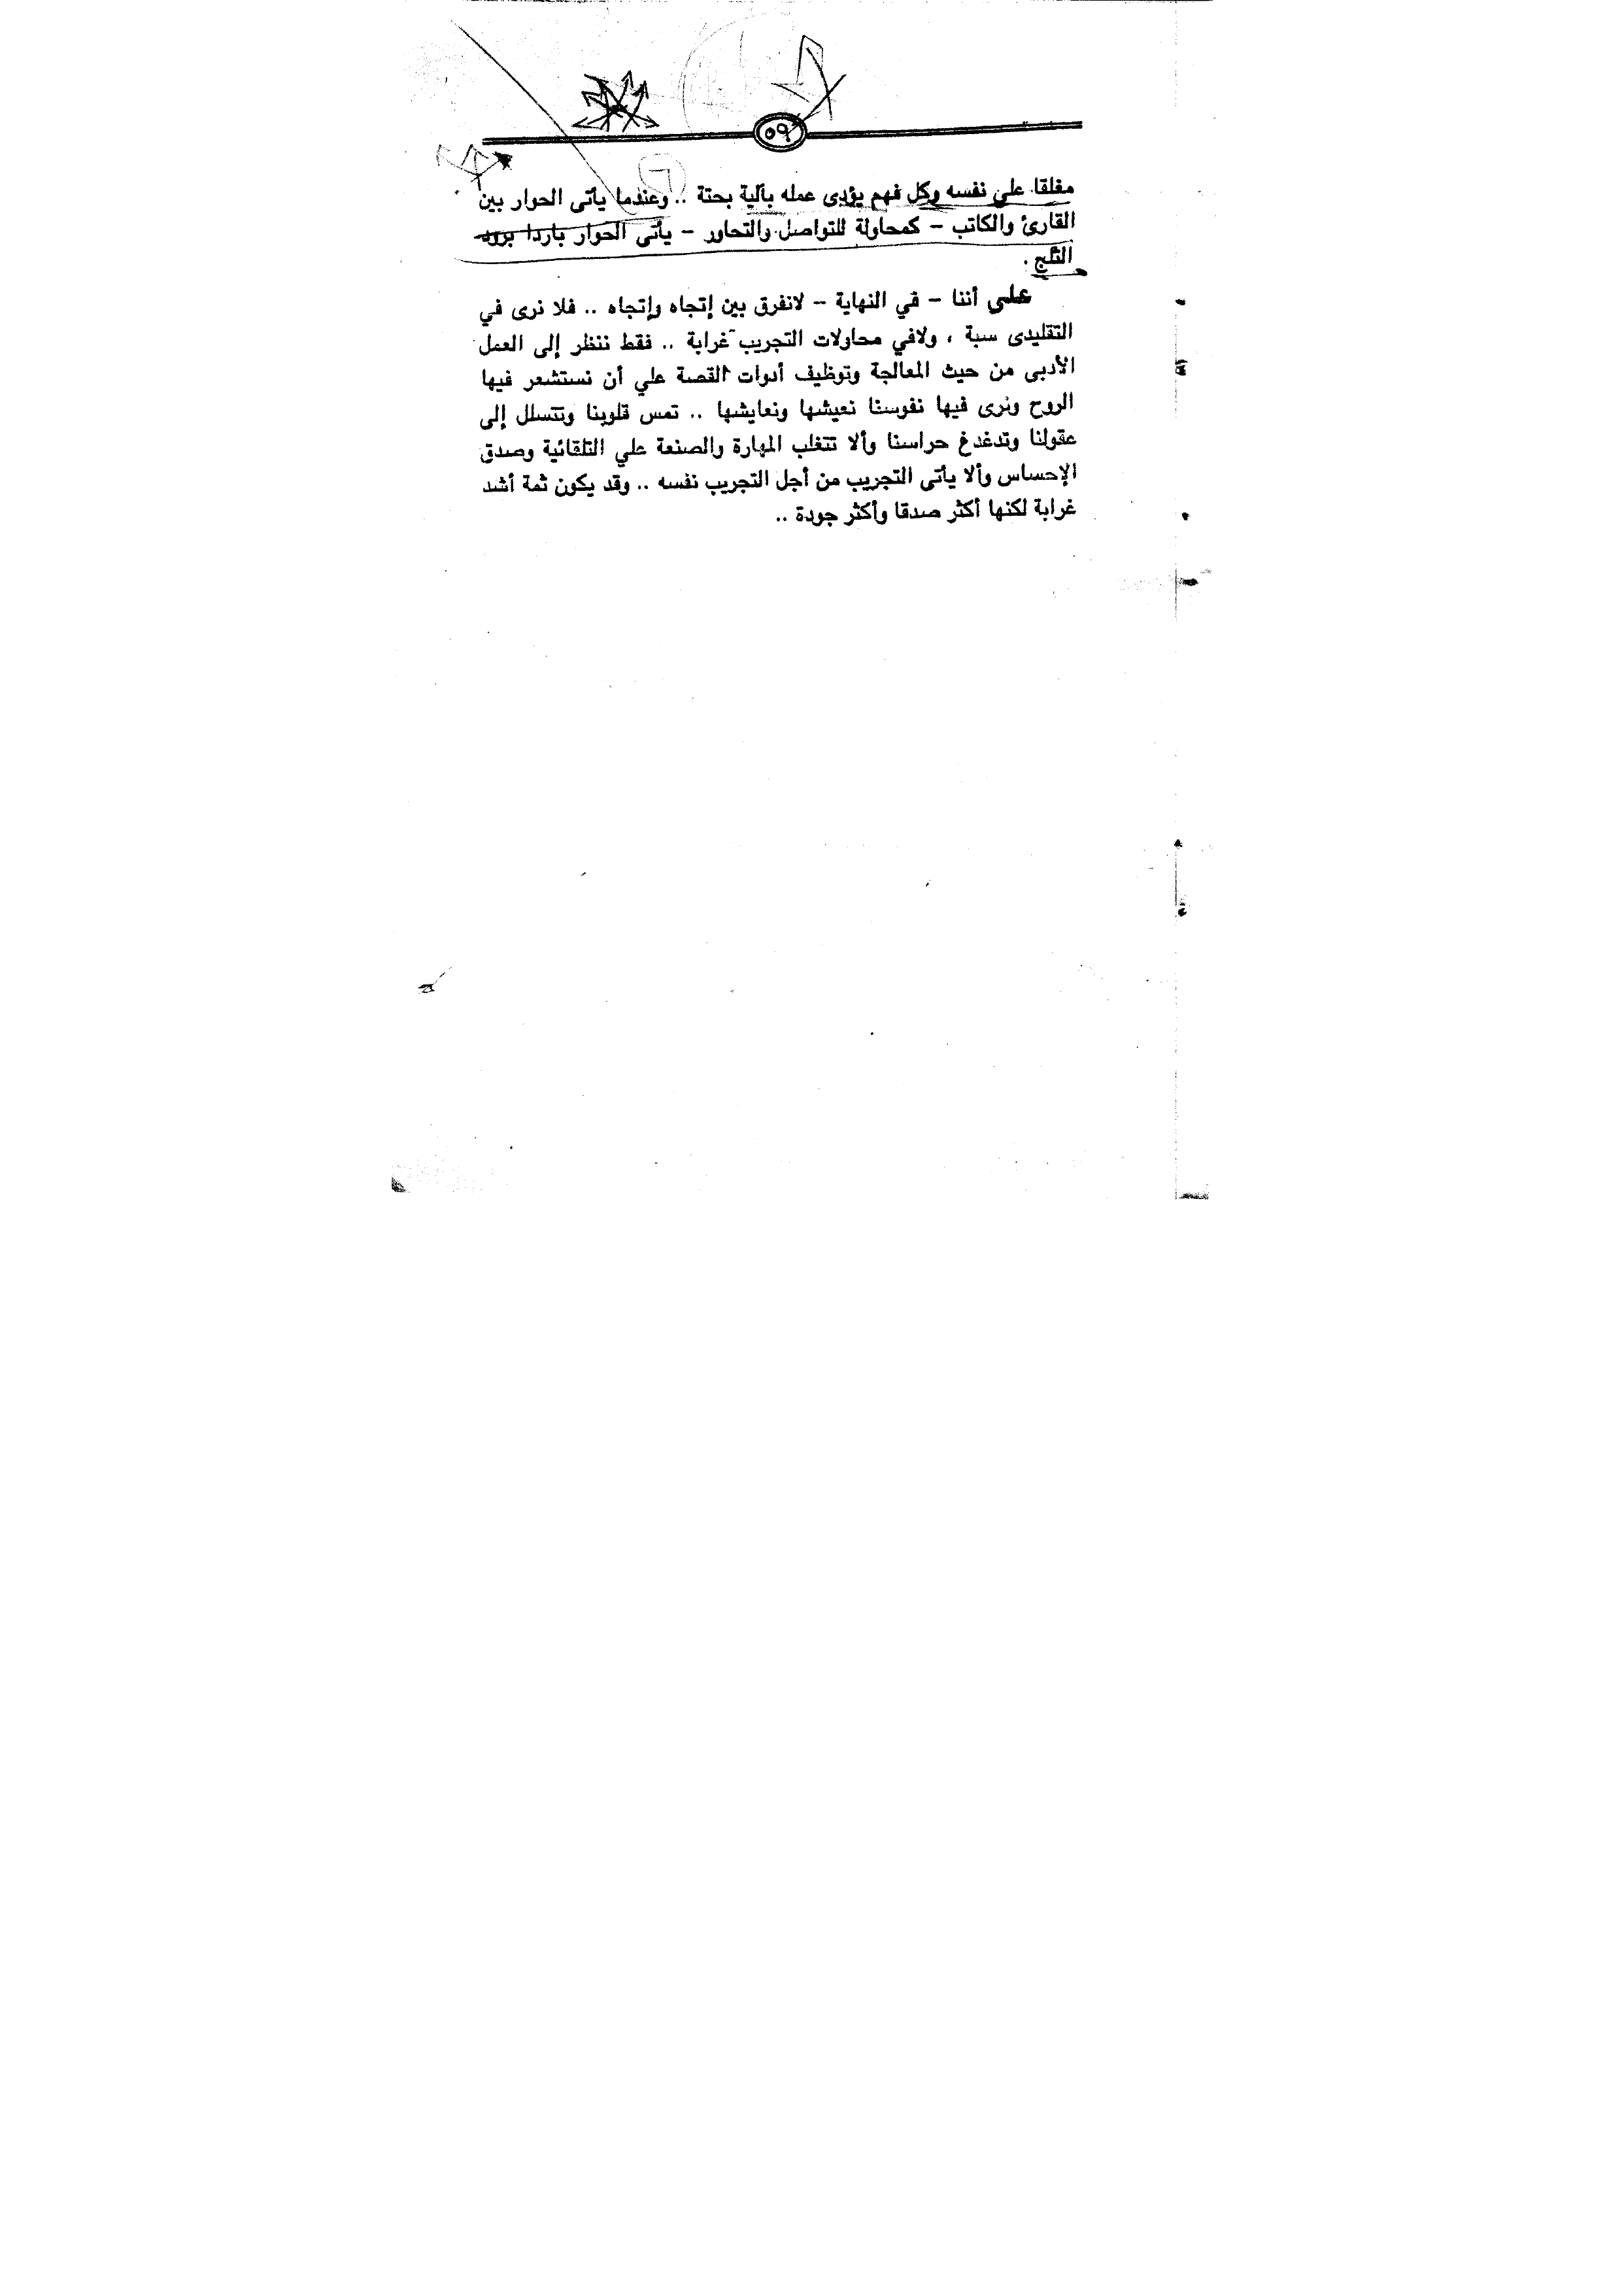 ٥٩
مغلقا علي نفسه وكل فهم يؤدى عمله بآلية بحتة .. وعندما يأتى الحوار بين
القارئ والكاتب – كمحاولة للتواصل والتحاور – يأتى الحوار باردا برود
الثلج .
علي أننا – في النهاية – لانفرق بين إتجاه وإتجاه .. فلا نرى في
التقليدى سبة ، ولافي محاولات التجريب غرابة .. فقط ننظر إلى العمل
الأدبى من حيث المعالجة وتوظيف أدوات القصة علي أن نستشعر فيها
الروح ونرى فيها نفوسنا نعيشها ونعايشها .. تمس قلوبنا وتتسلل إلى
عقولنا وتدغدغ حراسنا وألا تتغلب المهارة والصنعة علي التلقائية وصدق
الإحساس وألا يأتى التجريب من أجل التجريب نفسه .. وقد يكون ثمة أشد
غرابة لكنها أكثر صدقا وأكثر جودة ..